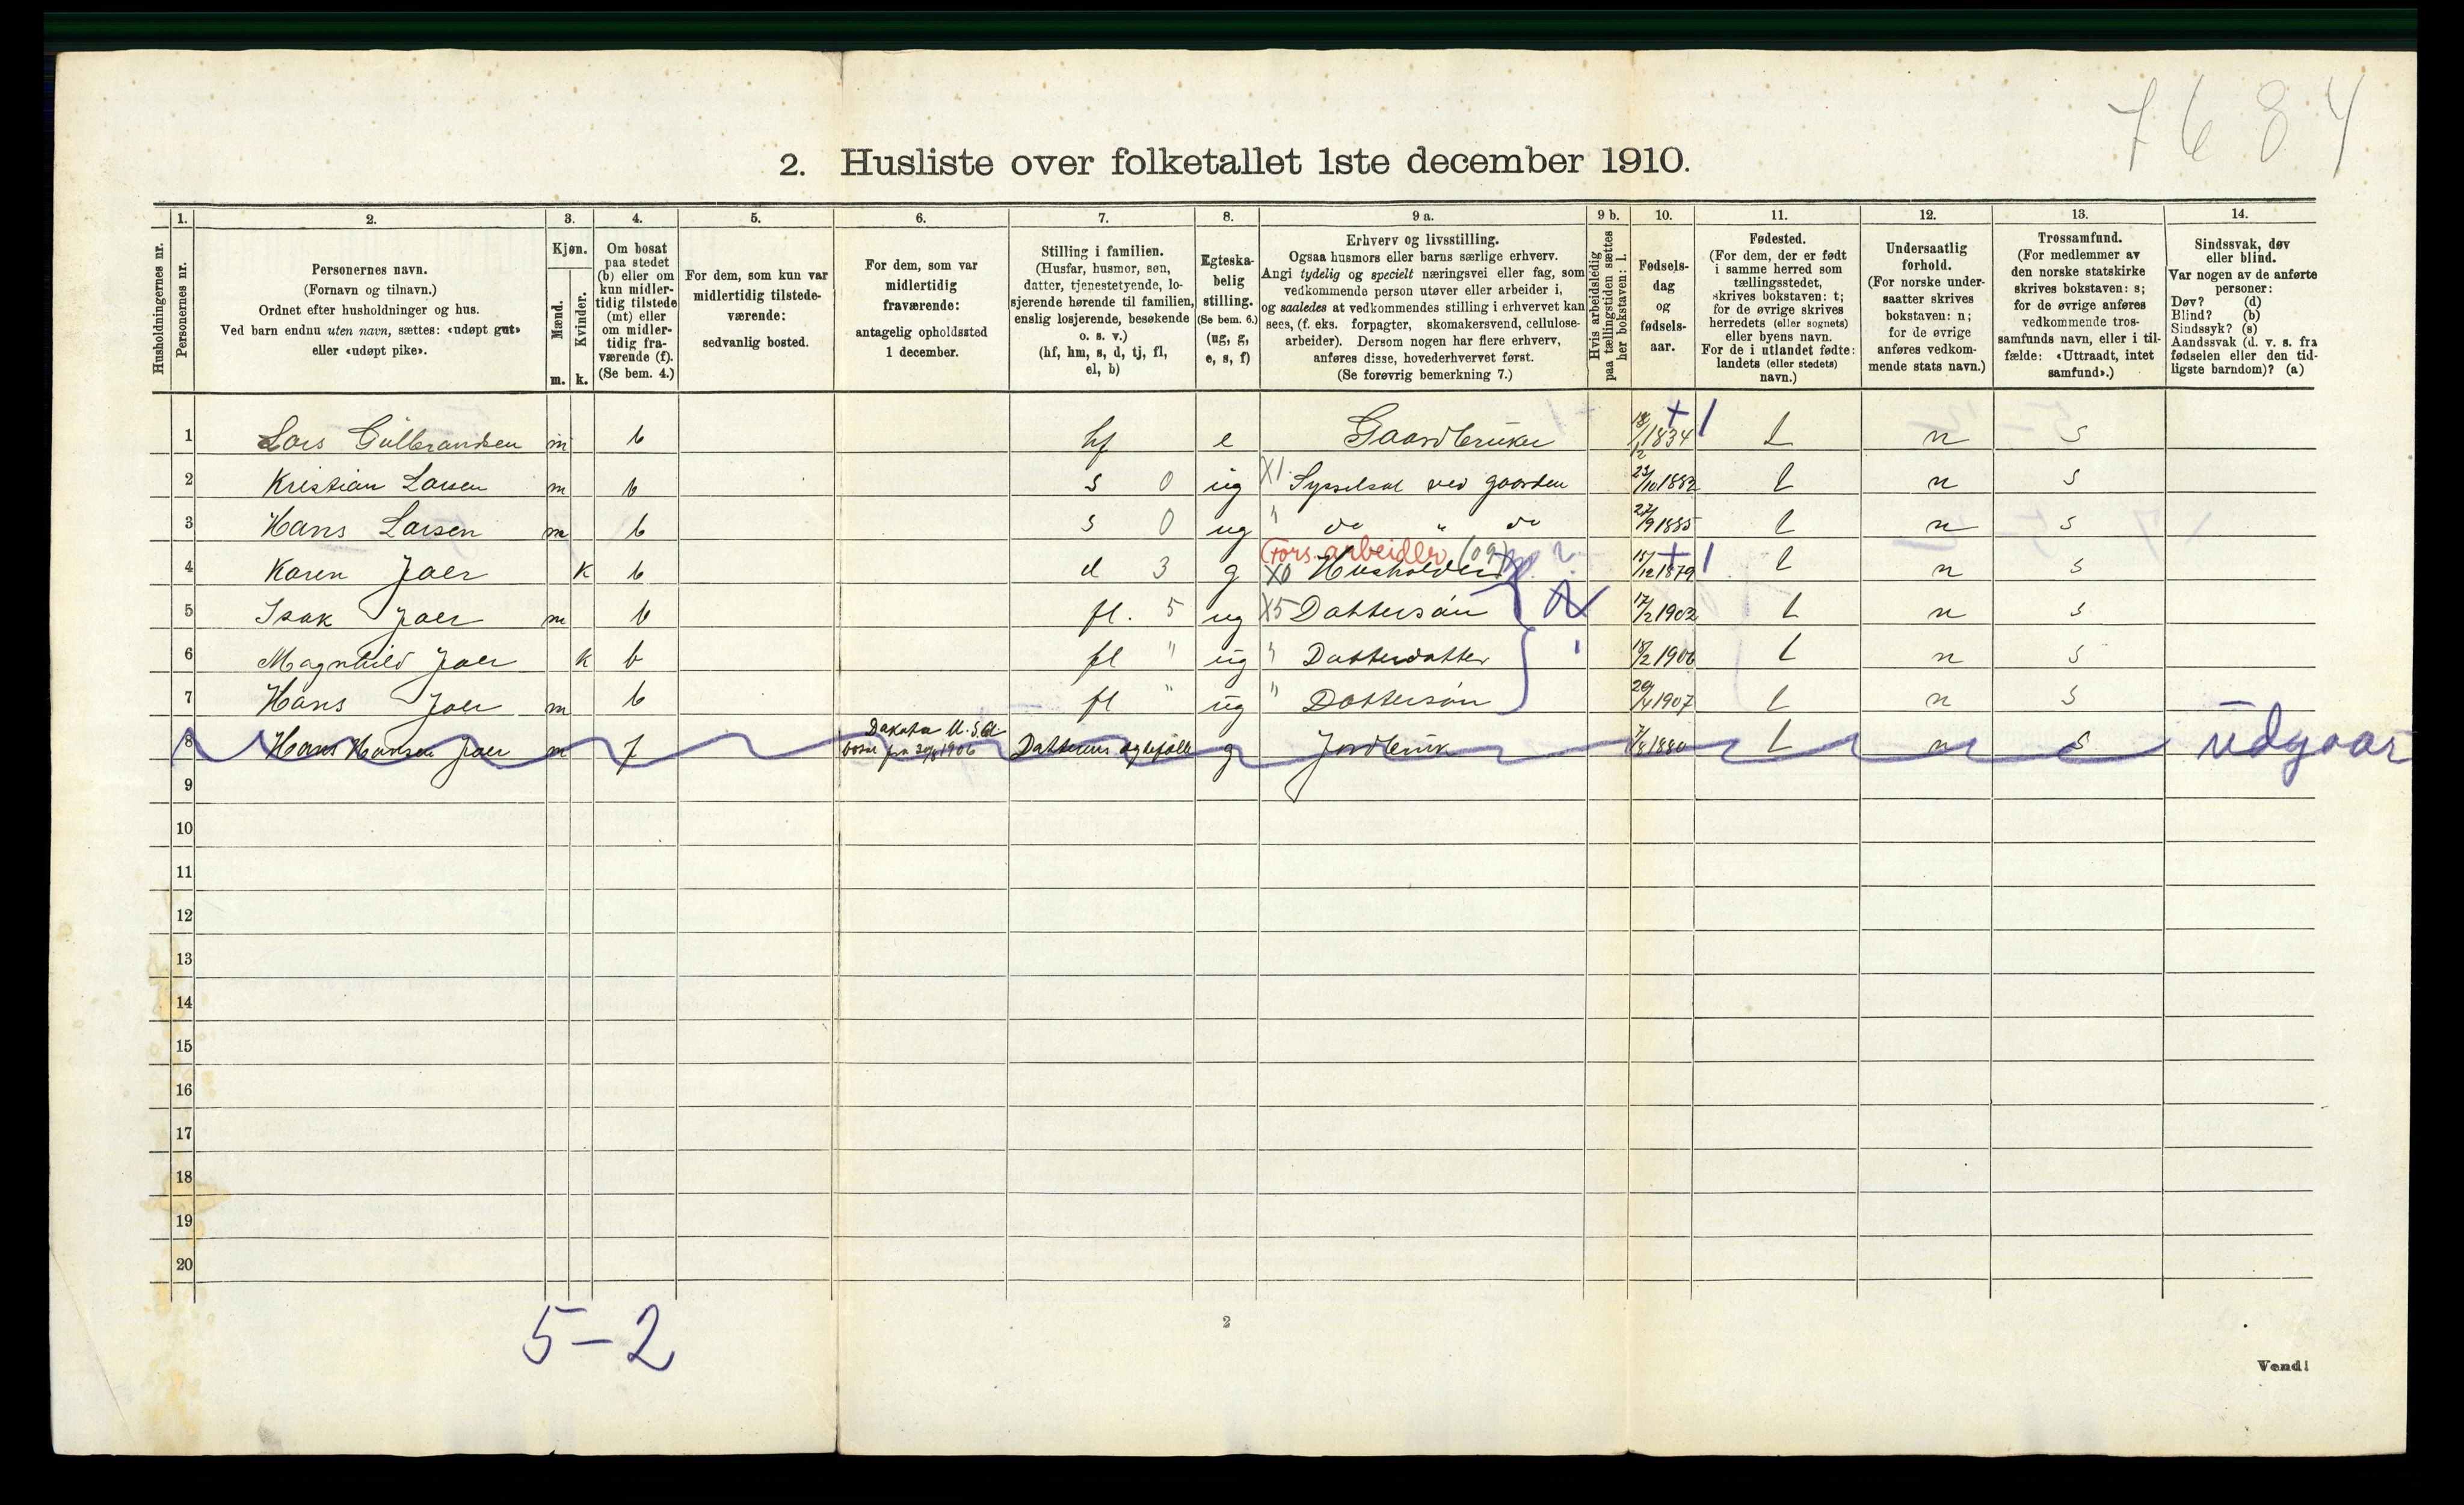 7684
2. Husliste over folketallet 1ste december 1910.
Husholdningernes nr.
1. Personernes nr.
2. Personernes navn.
(Fornavn og tilnavn.)
Ordnet efter husholdninger og hus.
Ved barn endnu uten navn, sættes: «udøpt gut»
eller «udøpt pike».
3. Kjøn.
Mænd. m.
Kvinder. k.
4. Om bosat
paa stedet
(b) eller om
kun midler-
tidig tilstede
(mt) eller
om midler-
tidig fra-
værende (f).
(Se bem. 4.)
5. For dem, som kun var
midlertidig tilstede-
værende:
sedvanlig bosted.
6. For dem, som var
midlertidig
fraværende:
antagelig opholdssted
1 december.
7. Stilling i familien.
(Husfar, husmor, søn,
datter, tjenestetyende, lo-
sjerende hørende til familien,
enslig losjerende, besøkende
o. s. v.)
(hf, hm, s, d, tj, fl,
el, b)
8. Egteska-
belig
stilling.
(Se bem. 6.)
(ug, g,
e, s, f)
9 a. Erhverv og livsstilling.
Ogsaa husmors eller barns særlige erhverv.
Angi tydelig og specielt næringsvei eller fag, som
vedkommende person utøver eller arbeider i,
og saaledes at vedkommendes stilling i erhvervet kan
sees, (f. eks. forpagter, skomakersvend, cellulose-
arbeider). Dersom nogen har flere erhverv,
anføres disse, hovederhvervet først.
(Se forøvrig bemerkning 7.)
9 b. Hvis arbeidsledig
paa tællingstiden sættes
her bokstaven: l.
10. Fødsels-
dag
og
fødsels-
aar.
11. Fødested.
(For dem, der er født
i samme herred som
tællingsstedet,
skrives bokstaven: t;
for de øvrige skrives
herredets (eller sognets)
eller byens navn.
For de i utlandet fødte:
landets (eller stedets)
navn.)
12. Undersaatlig
forhold.
(For norske under-
saatter skrives
bokstaven: n;
for de øvrige
anføres vedkom-
mende stats navn.)
13. Trossamfund.
(For medlemmer av
den norske statskirke
skrives bokstaven: s;
for de øvrige anføres
vedkommende tros-
samfunds navn, eller i til-
fælde: «Uttraadt, intet
samfund».)
14. Sindssvak, døv
eller blind.
Var nogen av de anførte
personer:
Døv? (d)
Blind? (b)
Sindssyk? (s)
Aandssvak (d. v. s. fra
fødselen eller den tid-
ligste barndom)? (a)
1 Lars Gulbrandsen m b hf e Gaardbruker 1834 t n s
2 Kristian Larsen m b s 0 ug X1 Sysselsat ved gaarden 23/10 1882 t n s
3 Hans Larsen m b s 0 ug " do " do 27/9 1885 t n s
4 Karen Joer k b d 3 g X0 Fors. arbeider (og) Husholder 15/12 1879 t n s
5 Isak Joer m b fl. 5 ug X5 Dattersøn 17/2 1902 t n s
6 Magnhild Joer k b fl " ug " Datterdatter 18/2 1906 t n s
7 Hans Joer m b fl " ug " Dattersøn 29/4 1907 t n s
8 Hans Hansen Joer m f Dakota U.S.A. 1906 Datterens egtefælle g Jordbruk 7/8 1880 t n s udgaar
9
10
11
12
13
14
15
16
17
18
19
20
5-2
2
Vend!